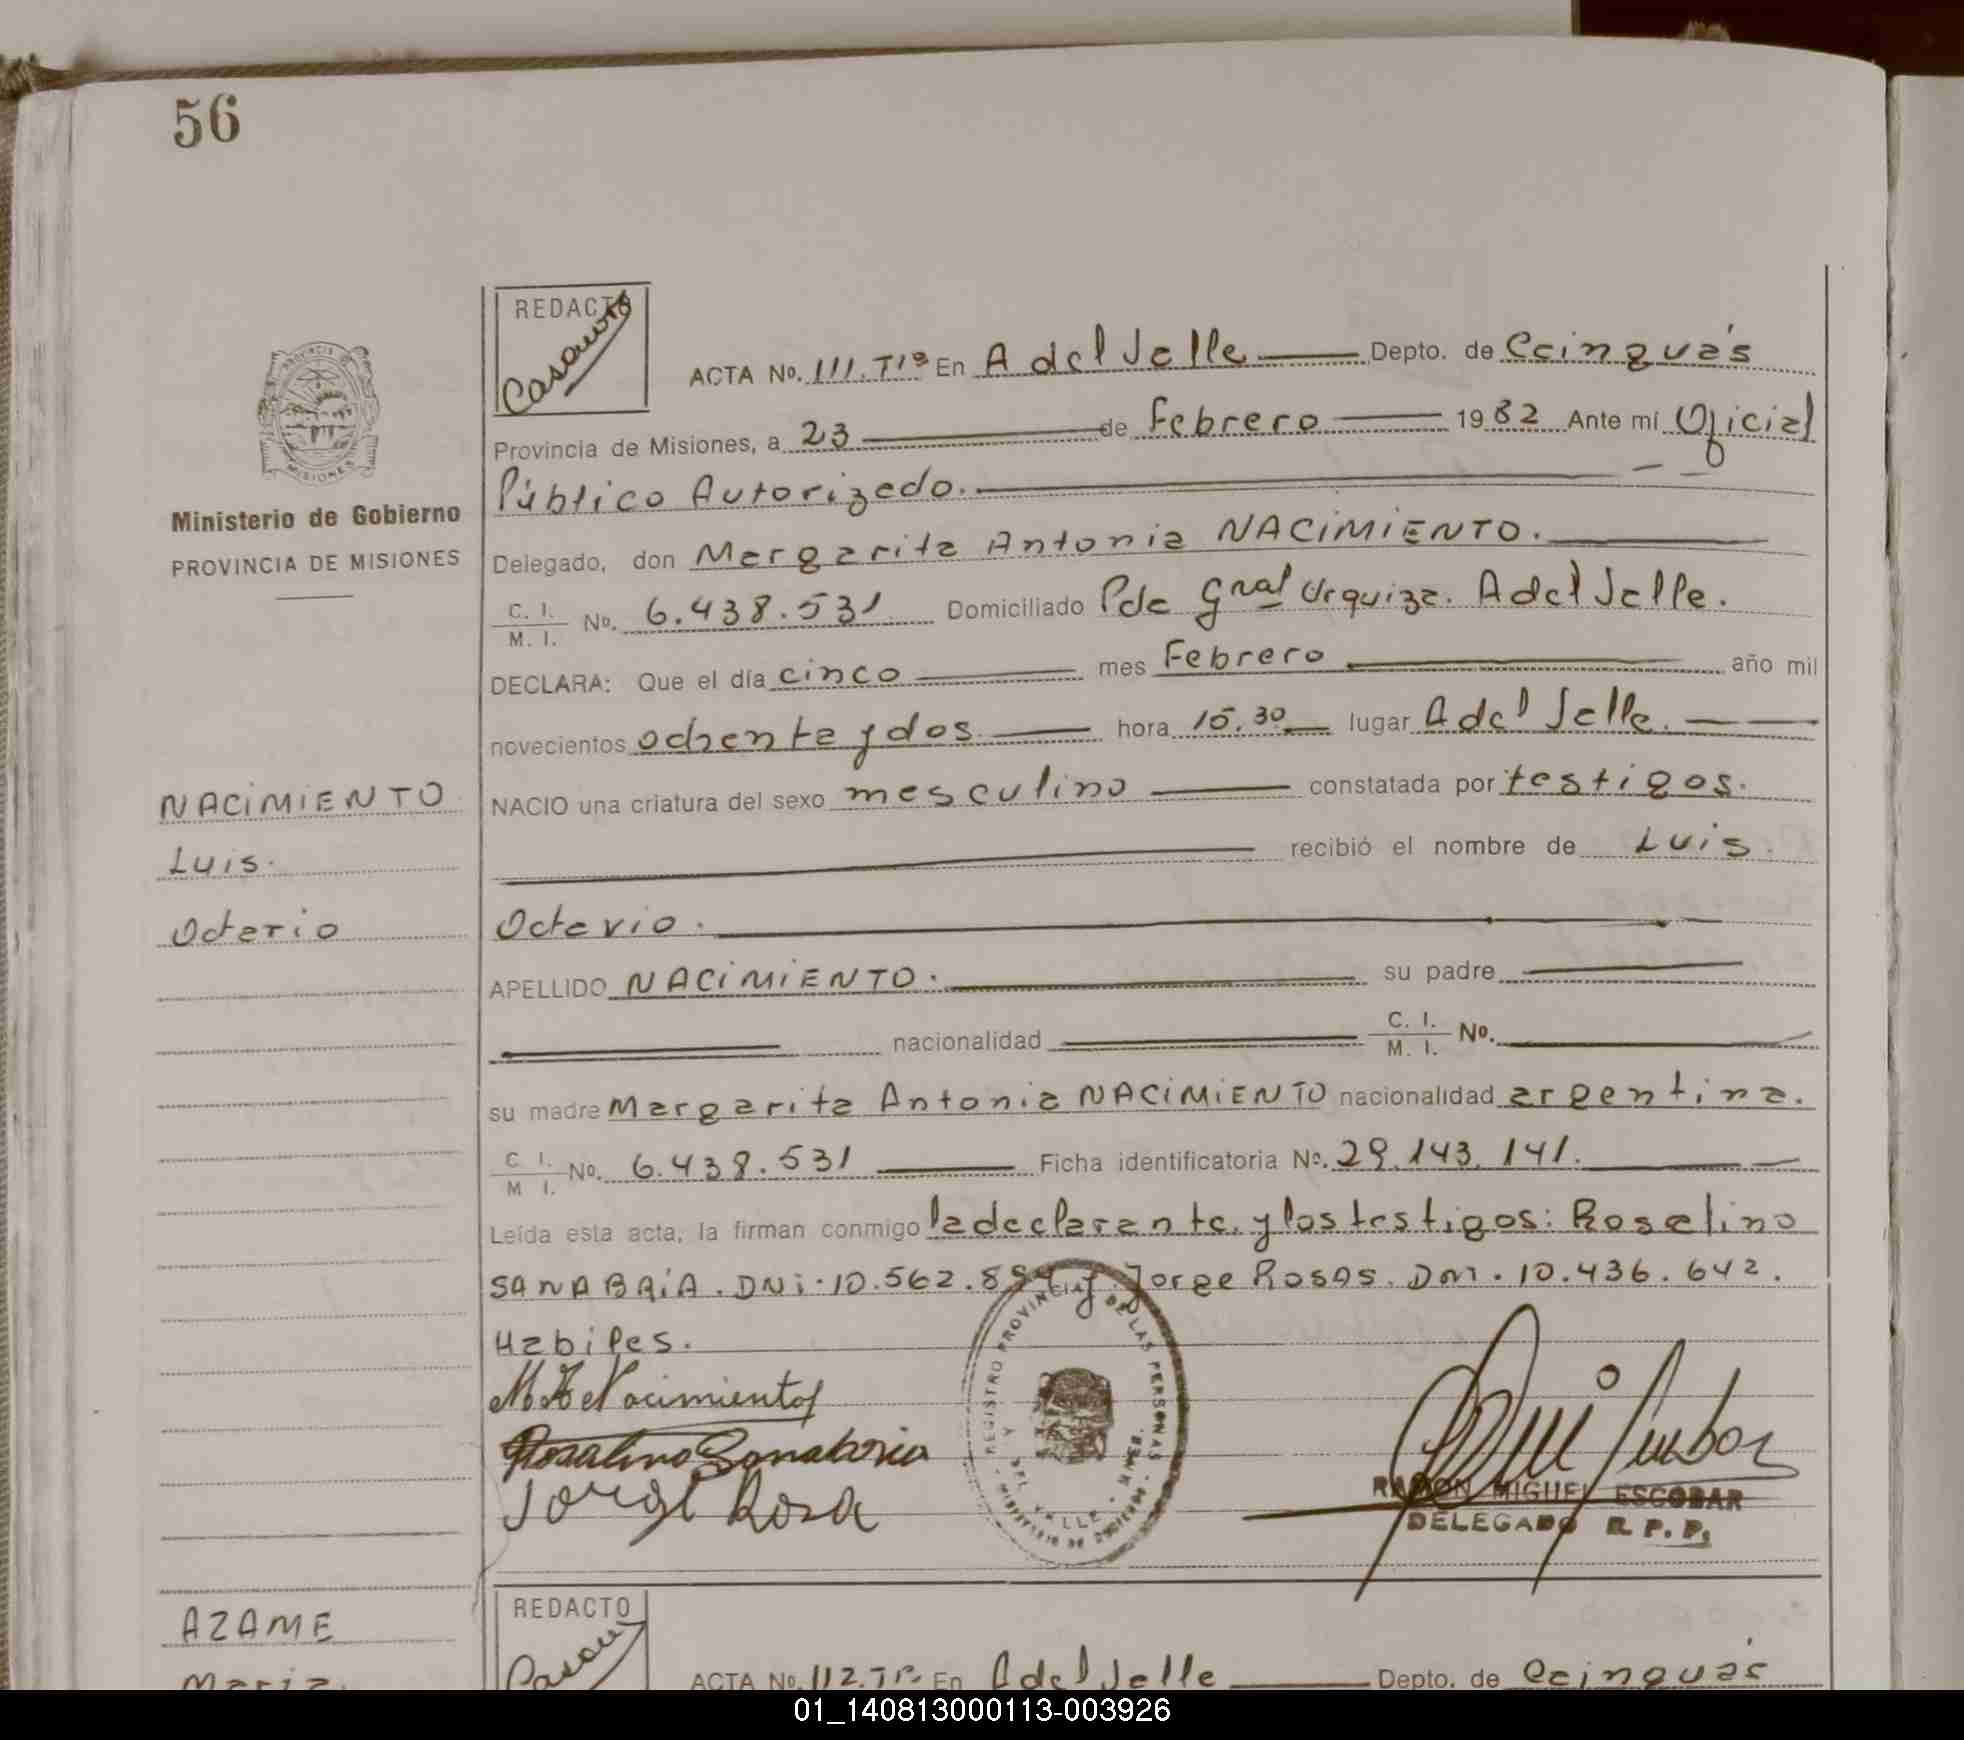 56
REDACTO
Casauto
ACTA No. 111.Tº1º En A del Valle Depto. de Cainguás
Provincia de Misiones, a 23 de Febrero 1982 Ante mí Oficial
Público Autorizado.
Ministerio de Gobierno
PROVINCIA DE MISIONES
Delegado, don Margarita Antonia NACIMIENTO.
C. I. / M. I. No. 6.438.531 Domiciliado Pde Gral Urquiza. A del Valle.
DECLARA: Que el día cinco mes Febrero año mil
novecientos ochenta y dos hora 15,30 lugar A del Valle.
NACIO una criatura del sexo masculino constatada por testigos.
recibió el nombre de Luis
Octavio.
NACIMIENTO
Luis.
Octavio
APELLIDO NACIMIENTO. su padre
nacionalidad C. I. / M. I. No.
su madre Margarita Antonia NACIMIENTO nacionalidad argentina.
C. I. / M. I. No. 6.438.531 Ficha identificatoria No. 29.143.141.
Leída esta acta, la firman conmigo la declarante, y los testigos: Rosalino
SANABRIA. DNi. 10.562.894 y Jorge Rosas. Dni. 10.436.642.
Habiles.
M A Nacimiento
Rosalino Sanabria
Jorge Rosa
REGISTRO PROVINCIAL DE LAS PERSONAS
DEL VALLE
MINISTERIO DE GOBIERNO
RAMON MIGUEL ESCOBAR
DELEGADO R. P. P.
AZAME
Maria
REDACTO
ACTA No. 112.Tº En A del Valle Depto. de Cainguás
01_140813000113-003926